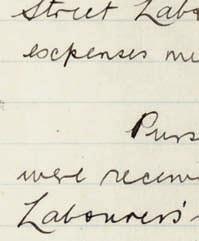 Street Labo
expenses me
Purs
were receiv
Labourers'